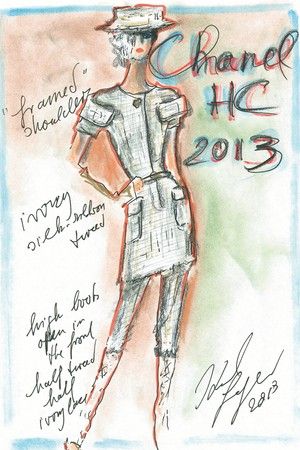 Chanel
HC
2013
"framed"
shoulders
ivory
silk ribbon
tweed
high boots
open in
the front
half tweed
half
ivory lace
Karl
2013